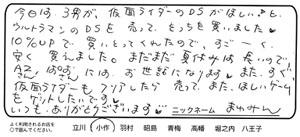 今日は、3男が、仮面ライダーのDSがほしい!と、
ウルトラマンのDSを売って、そっちを買いました。
10%UPで買いとってくれたので、すごーく、
安く買えました。まだまだ夏休みは長いので、
はお世話になります。また、すぐ、
仮面ライダーもクリアしたら売って、また、ほしいゲーム
をゲットしたいです。
いつも、ありがとうございます。 ニックネーム まゆみん
よく利用されるお店を
○で囲んでください。 立川 小作 羽村 昭島 青梅 高幡 堀之内 八王子